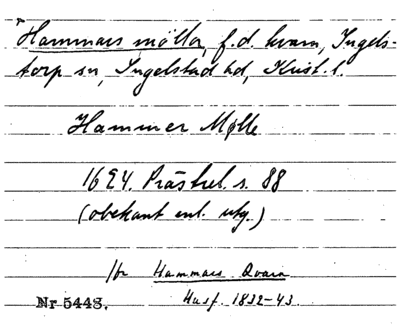 Hammars mölla, f.d. kvarn, Ingels-
torp sn, Ingelstad hd, Krist. l.
Hammer Mølle
1624. Prästrel. s. 88
(obekant enl. utg.)
/br Hammars Qvarn
Nr 5443. Husf. 1832-43.